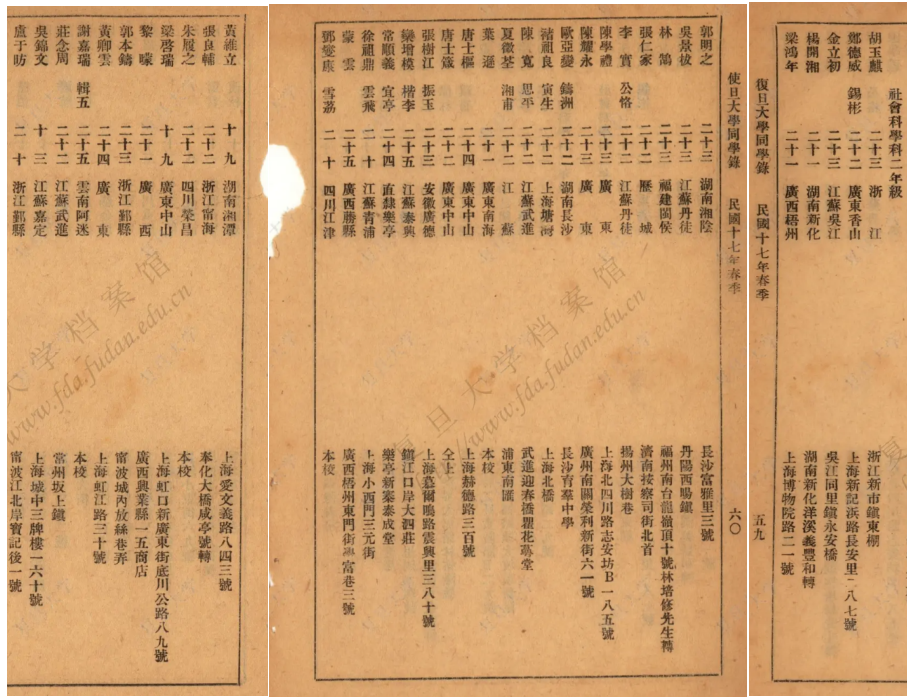 社會科學科二年級
胡玉麒 二十三 浙江 浙江新市鎮東棚
鄭德威 錫彬 二十二 廣東香山 上海新記浜路長安里一八七號
金立初 二十三 江蘇吳江 吳江同里鎮永安橋
楊開湘 二十一 湖南新化 湖南新化洋溪義豐和轉
梁鴻年 二十一 廣西梧州 上海博物院路二一號
復旦大學同學錄 民國十七年春季 五九
復旦大學同學錄 民國十七年春季 六〇
郭明之 二十三 湖南湘陰 長沙富雅里三號
吳景棫 二十三 江蘇丹徒 丹陽西暘鎮
林鵠 二十三 福建閩侯 福州南台龍嶺頂十號林培修先生轉
張仁家 二十二 歷城 濟南按察司街北首
李寶 公恪 二十二 江蘇丹徒 揚州大樹巷
陳學禮 二十三 廣東 上海北四川路志安坊B一八五號
陳耀永 二十三 廣東 廣州南關榮利新街六一號
歐亞變 鑄洲 二十二 湖南長沙 長沙育羣中學
潘祖良 寅生 二十二 上海塘灣 上海北橋
陳寬 思平 二十二 江蘇武進 武進迎春橋瞿花蕚堂
夏徵荃 湘甫 二十二 江蘇 浦東南匯
葉遜 二十一 廣東南海 本校
唐士樞 二十四 廣東中山 上海赫德路三百號
唐士箴 二十二 廣東中山 仝上
張樹江 振玉 二十三 安徽廣德 上海慕爾鳴路震興里三八十號
欒增模 楷李 二十五 江蘇泰興 鎮江口岸大泗莊
常順義 宜亭 二十四 直隸樂亭 樂亭新寨泰成堂
徐祖鼎 雲飛 二十 江蘇青浦 上海小西門三元街
蒙雲 二十五 廣西藤縣 廣西梧州東門街學富巷三號
鄧燮康 雲荔 二十 四川江津 本校
黃維立 十九 湖南湘潭 上海愛文義路八四三號
張良輔 二十二 浙江甯海 奉化大橋咸亭號轉
朱履之 二十二 四川榮昌 本校
梁啓瑞 十九 廣東中山 上海虹口新廣東街底川公路八九號
黎嚎 二十一 廣西 廣西興業縣一五商店
郭本鑄 二十三 浙江鄞縣 甯波城內放絲巷弄
黃卿雲 二十四 廣東 上海虹江路三十號
謝嘉瑞 輯五 二十五 雲南阿迷 本校
莊念周 二十二 江蘇武進 常州坂上鎮
吳錦文 十三 江蘇嘉定 上海城中三牌樓一六十號
盧于昉 二十 浙江鄞縣 甯波江北岸寶記後一號